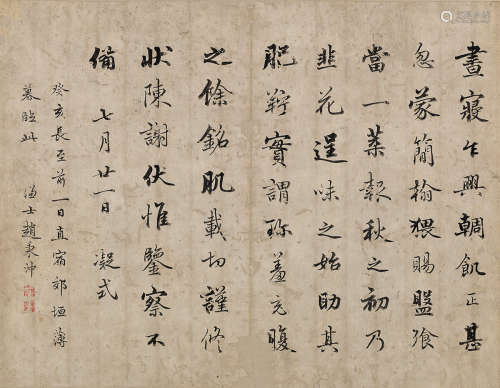 晝寢乍興朝飢正甚
忽蒙簡翰猥賜盤飧
當一葉報秋之初乃
韭花逞味之始助其
肥羜實謂珍羞充腹
之餘銘肌載切謹修
狀陳謝伏惟鑒察不
備 七月廿一日 凝式
癸亥長至前一日直宿郊垣薄
暮臨此 趙秉沖